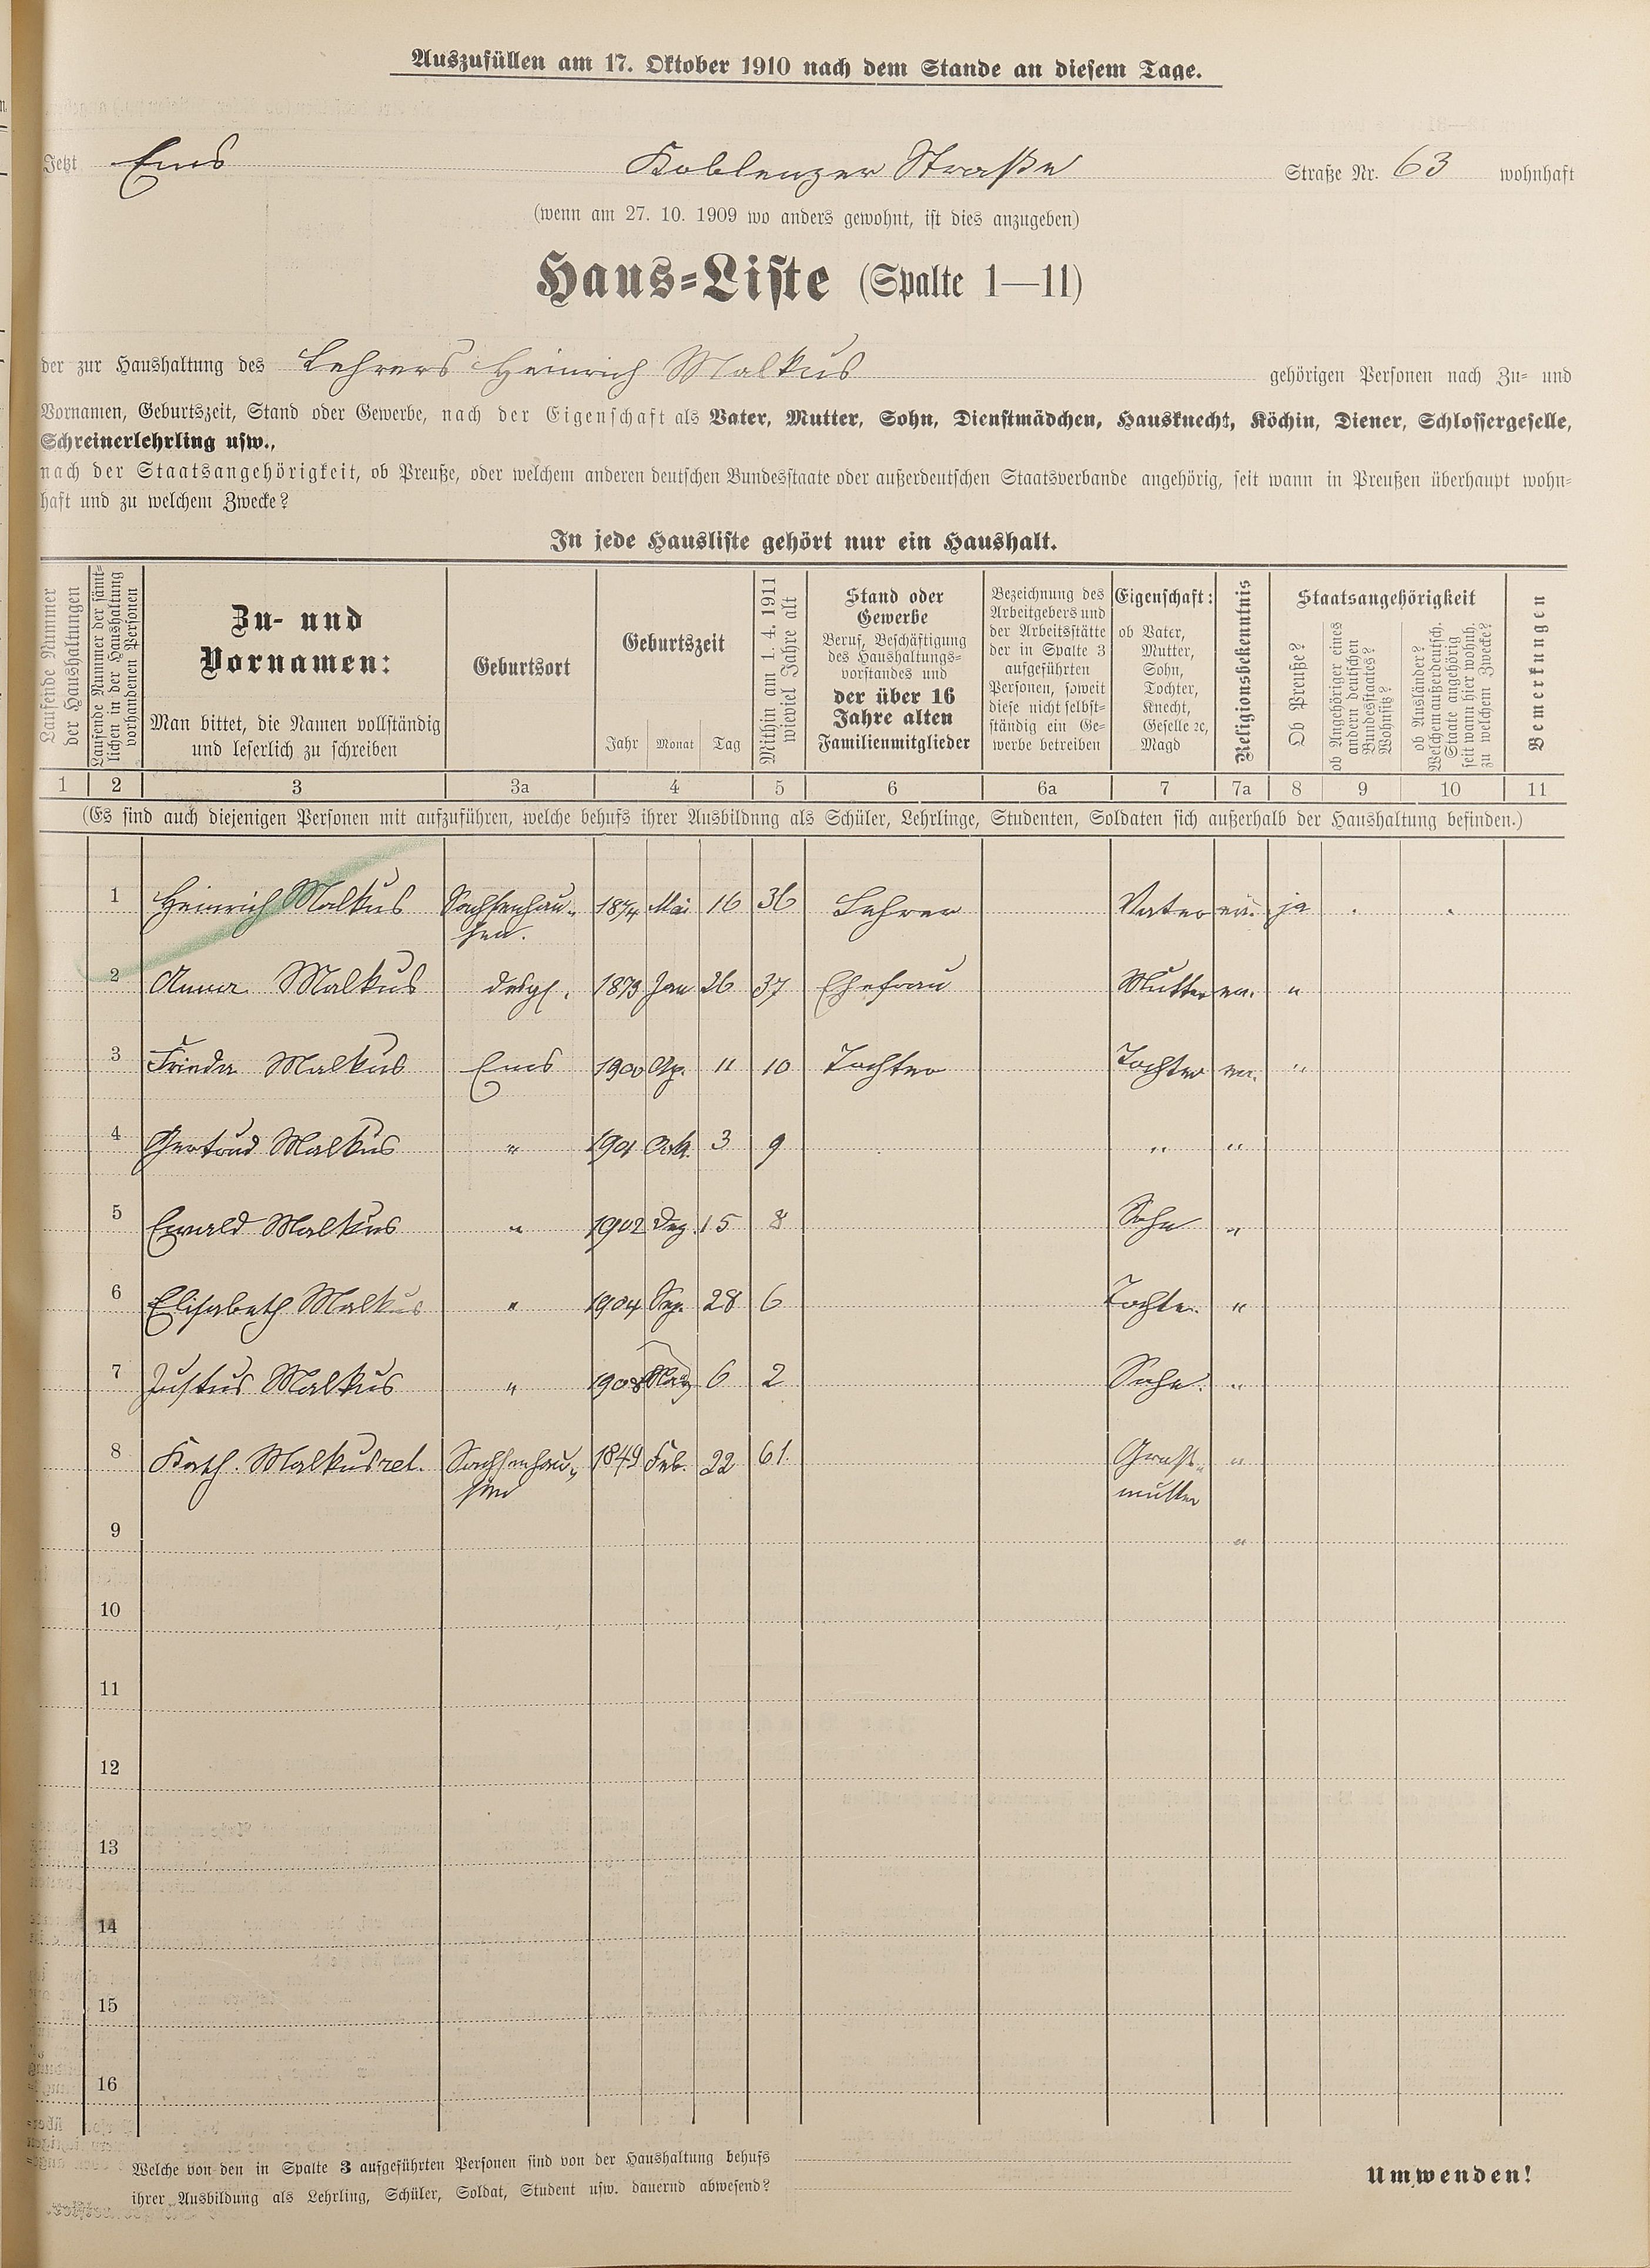 Auszufüllen am 17. Oktober 1910 nach dem Stande an diesem Tage.
Jetzt Ems Koblenzer Straße Straße Nr. 63 wohnhaft
(wenn am 27. 10. 1909 wo anders gewohnt, ist dies anzugeben)
Haus-Liste (Spalte 1—11)
der zur Haushaltung des Lehrers Heinrich Malkus gehörigen Personen nach Zu- und
Vornamen, Geburtszeit, Stand oder Gewerbe, nach der Eigenschaft als Vater, Mutter, Sohn, Dienstmädchen, Hausknecht, Köchin, Diener, Schlossergeselle,
Schreinerlehrling usw.,
nach der Staatsangehörigkeit, ob Preuße, oder welchem anderen deutschen Bundesstaate oder außerdeutschen Staatsverbande angehörig, seit wann in Preußen überhaupt wohn-
haft und zu welchem Zwecke?
In jede Hausliste gehört nur ein Haushalt.
Laufende Nummer
der Haushaltungen
Laufende Nummer der sämt-
lichen in der Haushaltung
vorhandenen Personen
Zu- und
Vornamen:
Man bittet, die Namen vollständig
und leserlich zu schreiben
Geburtsort
Geburtszeit
Jahr Monat Tag
Mithin am 1. 4. 1911
wieviel Jahre alt
Stand oder
Gewerbe
Beruf, Beschäftigung
des Haushaltungs-
vorstandes und
der über 16
Jahre alten
Familienmitglieder
Bezeichnung des
Arbeitgebers und
der Arbeitsstätte
der in Spalte 3
aufgeführten
Personen, soweit
diese nicht selbst-
ständig ein Ge-
werbe betreiben
Eigenschaft:
ob Vater,
Mutter,
Sohn,
Tochter,
Knecht,
Geselle ꝛc,
Magd
Religionsbekenntnis
Staatsangehörigkeit
Ob Preuße?
ob Angehöriger eines
andern deutschen
Bundesstaates?
Wohnsitz?
ob Ausländer?
Welchem außerdeutsch.
Staate angehörig
seit wann hier wohnh.
zu welchem Zwecke?
Bemerkungen
1 2 3 3a 4 5 6 6a 7 7a 8 9 10 11
(Es sind auch diejenigen Personen mit aufzuführen, welche behufs ihrer Ausbildnng als Schüler, Lehrlinge, Studenten, Soldaten sich außerhalb der Haushaltung befinden.)
1 Heinrich Malkus Sachsenhau- 1874 Mai 16 36 Lehrer Vater ev. ja
sen.
2 Anna Malkus desgl. 1873 Jan 26 37 Ehefrau Mutter ev. "
3 Frieda Malkus Ems 1900 Ap. 11 10 Tochter Tochter ev. "
4 Gertrud Malkus " 1901 Okt. 3 9 " "
5 Ewald Malkus " 1902 Dez. 15 8 Sohn "
6 Elisabeth Malkus " 1904 Sep. 28 6 Tochter "
7 Justus Malkus " 1908 März 6 2 Sohn "
8 Kath. Malkus rel. Sachsenhau- 1849 Feb. 22 61. Groß- "
sen mutter
9 "
10
11
12
13
14
15
16
Welche von den in Spalte 3 aufgeführten Personen sind von der Haushaltung behufs
ihrer Ausbildung als Lehrling, Schüler, Soldat, Student usw. dauernd abwesend?
Umwenden!